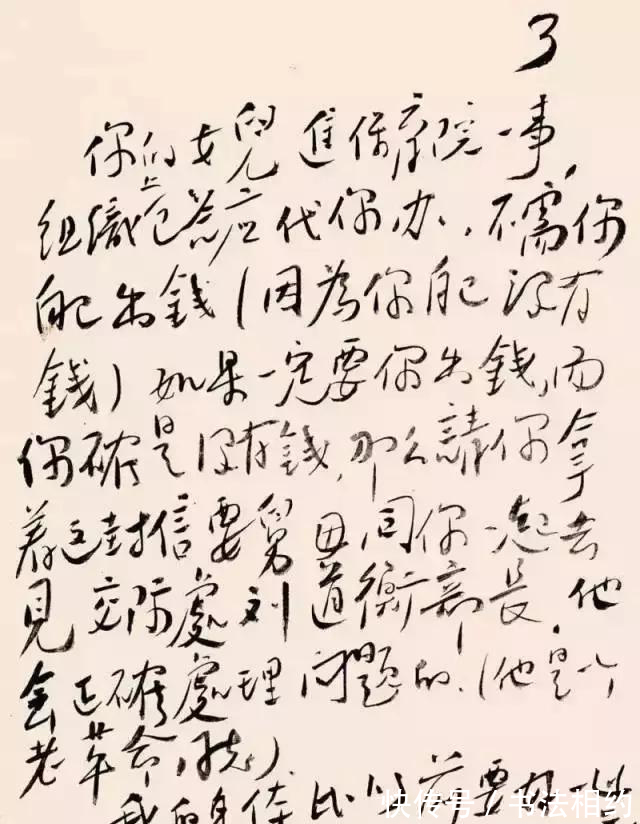 3
你的女兒進保育院一事,
組織 应代你办,不需你
自己出錢(因為你自己沒有
錢)如果一定要你出錢,而
你確是沒有錢,那么請你拿
着这封信要舅母同你一起去
見交际處刘道衡部長,他
会正確處理问題的。(他是个
老革命, )
我的身体比以前要好一些
快传号/书法相约